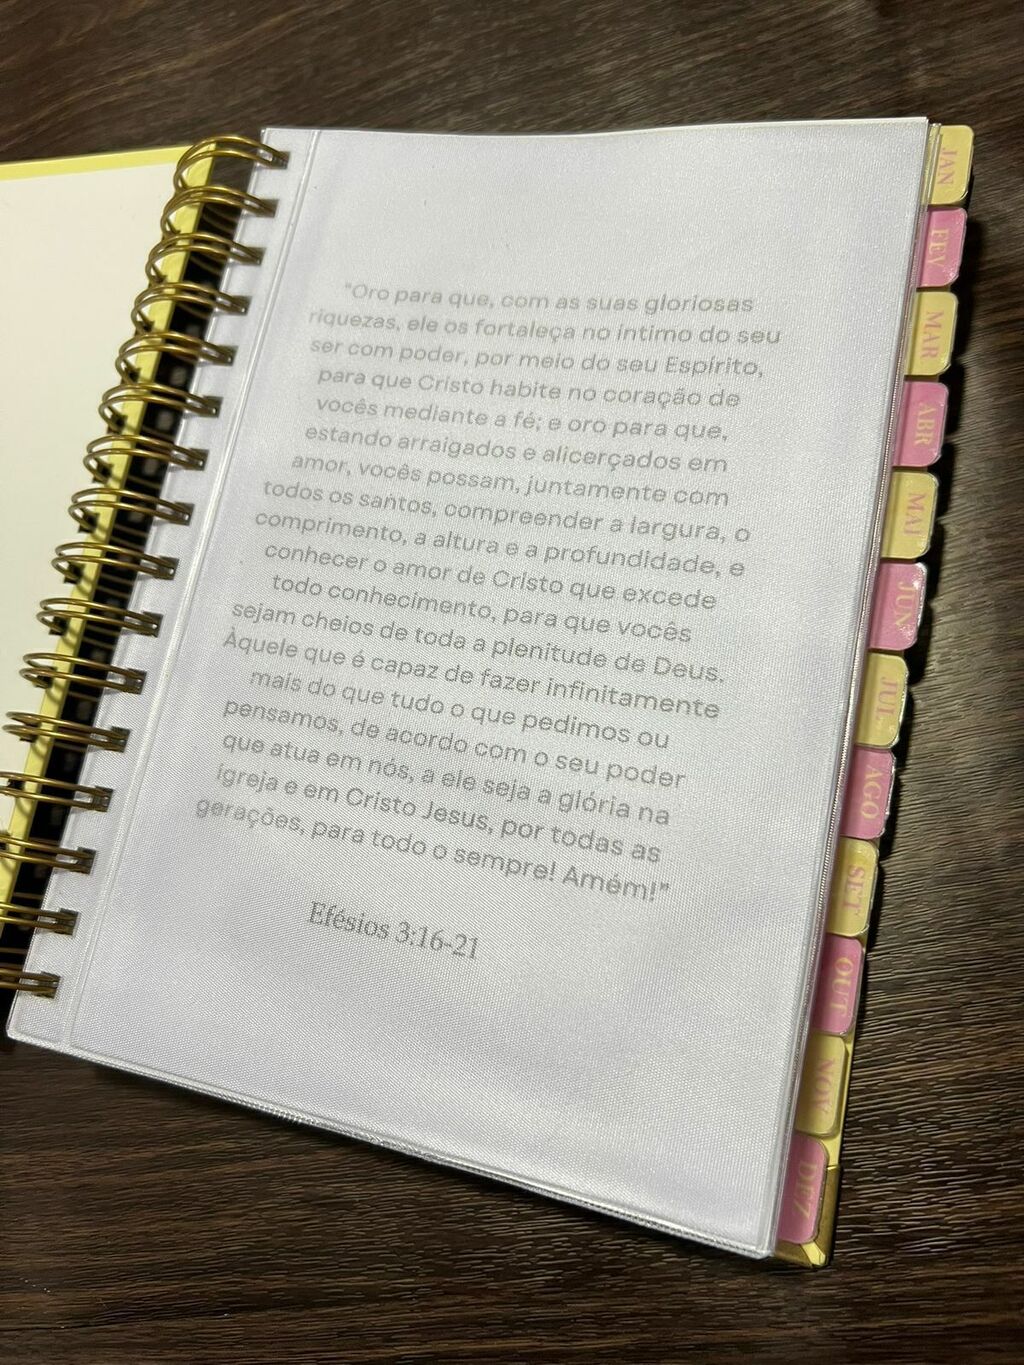 "Oro para que, com as suas gloriosas
riquezas, ele os fortaleça no íntimo do seu
ser com poder, por meio do seu Espírito,
para que Cristo habite no coração de
vocês mediante a fé; e oro para que,
estando arraigados e alicerçados em
amor, vocês possam, juntamente com
todos os santos, compreender a largura, o
comprimento, a altura e a profundidade, e
conhecer o amor de Cristo que excede
todo conhecimento, para que vocês
sejam cheios de toda a plenitude de Deus.
Àquele que é capaz de fazer infinitamente
mais do que tudo o que pedimos ou
pensamos, de acordo com o seu poder
que atua em nós, a ele seja a glória na
igreja e em Cristo Jesus, por todas as
gerações, para todo o sempre! Amém!"
Efésios 3:16-21
JAN
FEV
MAR
ABR
MAI
JUN
JUL
AGO
SET
OUT
NOV
DEZ